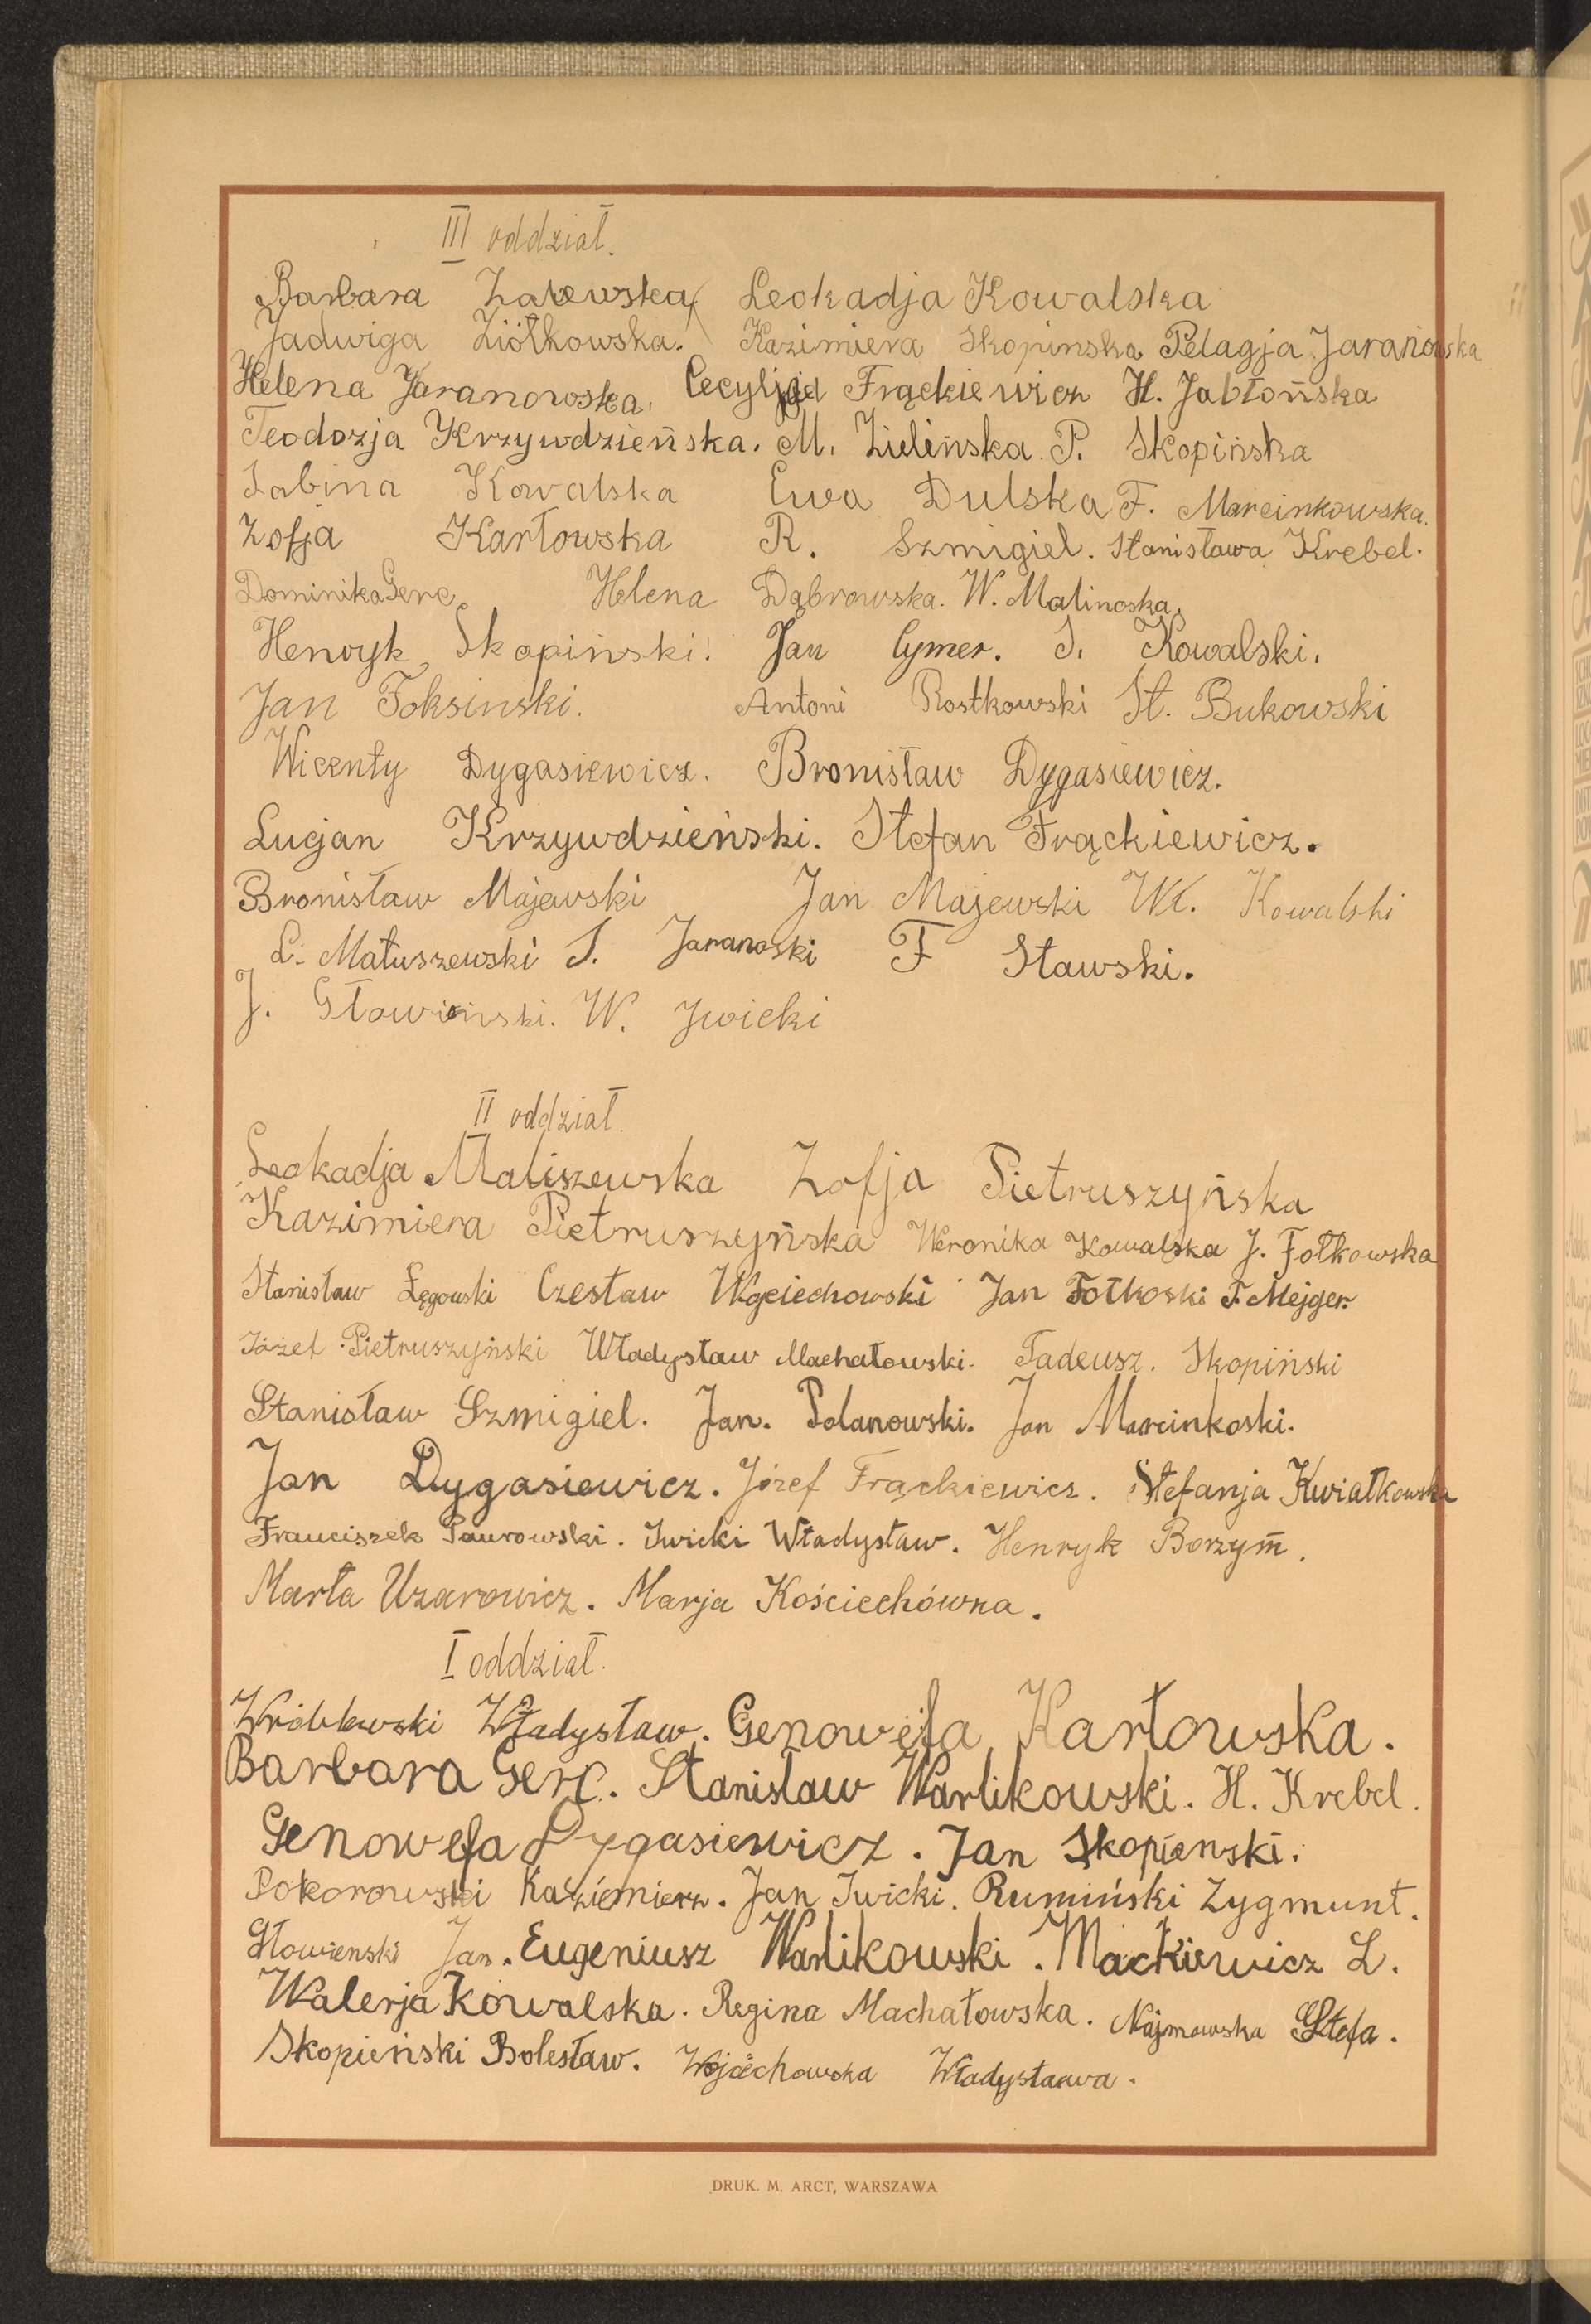 III oddział.
Barbara Zalewska Leokadja Kowalska
Jadwiga Ziółkowska. Kazimiera Skopinska Pelagja Jaranowska
Helena Jaranowska. Cecylja Frąckiewicz H. Jabłońska
Teodozja Krzywdzieńska. M. Zielińska. P. Skopińska
Sabina Kowalska Ewa Dulska F. Marcinkowska.
Zofja Karłowska R. Szmigiel. Stanisława Krebel.
Dominika Gerc. Helena Dąbrowska. W. Malinoska.
Henryk Skopiński. Jan Cymer. S. Kowalski.
Jan Foksinski. Antoni Rostkowski St. Bukowski
Wicenty Dygasiewicz. Bronisław Dygasiewicz.
Lucjan Krzywdzieński. Stefan Frąckiewicz.
Bronisław Majewski Jan Majewski Wł. Kowalski
L. Matuszewski S. Jaranoski F Stawski.
J. Słowiński. W. Jwicki
II oddział.
Leokadja Maliszewska Zofja Pietruszyńska
Kazimiera Pietruszyńska Weronika Kowalska J. Fołkowska
Stanisław Łęgowski Czesław Wojciechowski Jan Fołkoski F. Mejger.
Józef Pietruszyński Władysław Machałowski. Tadeusz. Skopiński
Stanisław Szmigiel. Jan. Polanowski. Jan Marcinkoski.
Jan Dygasiewicz. Józef Frąckiewicz. Stefanja Kwiatkowska
Franciszek Jwicki Władysław. Henryk Borzym.
Marta Uzarowicz. Marja Kościechówna.
I oddział.
Wróblewski Władysław. Genowefa Karłowska.
Barbara Gerc. Stanisław Warlikowski. H. Krebel.
Genowefa Dygasiewicz. Jan Skopienski.
Pokorowski Kazimierz. Jan Jwicki. Rumiński Zygmunt.
Słowienski Jan. Eugeniusz Warlikowski. Mackiewicz L.
Walerja Kowalska. Regina Machałowska. Najmowska Stefa.
Skopieński Bolesław. Wojciechowska Władysława.
DRUK. M. ARCT, WARSZAWA